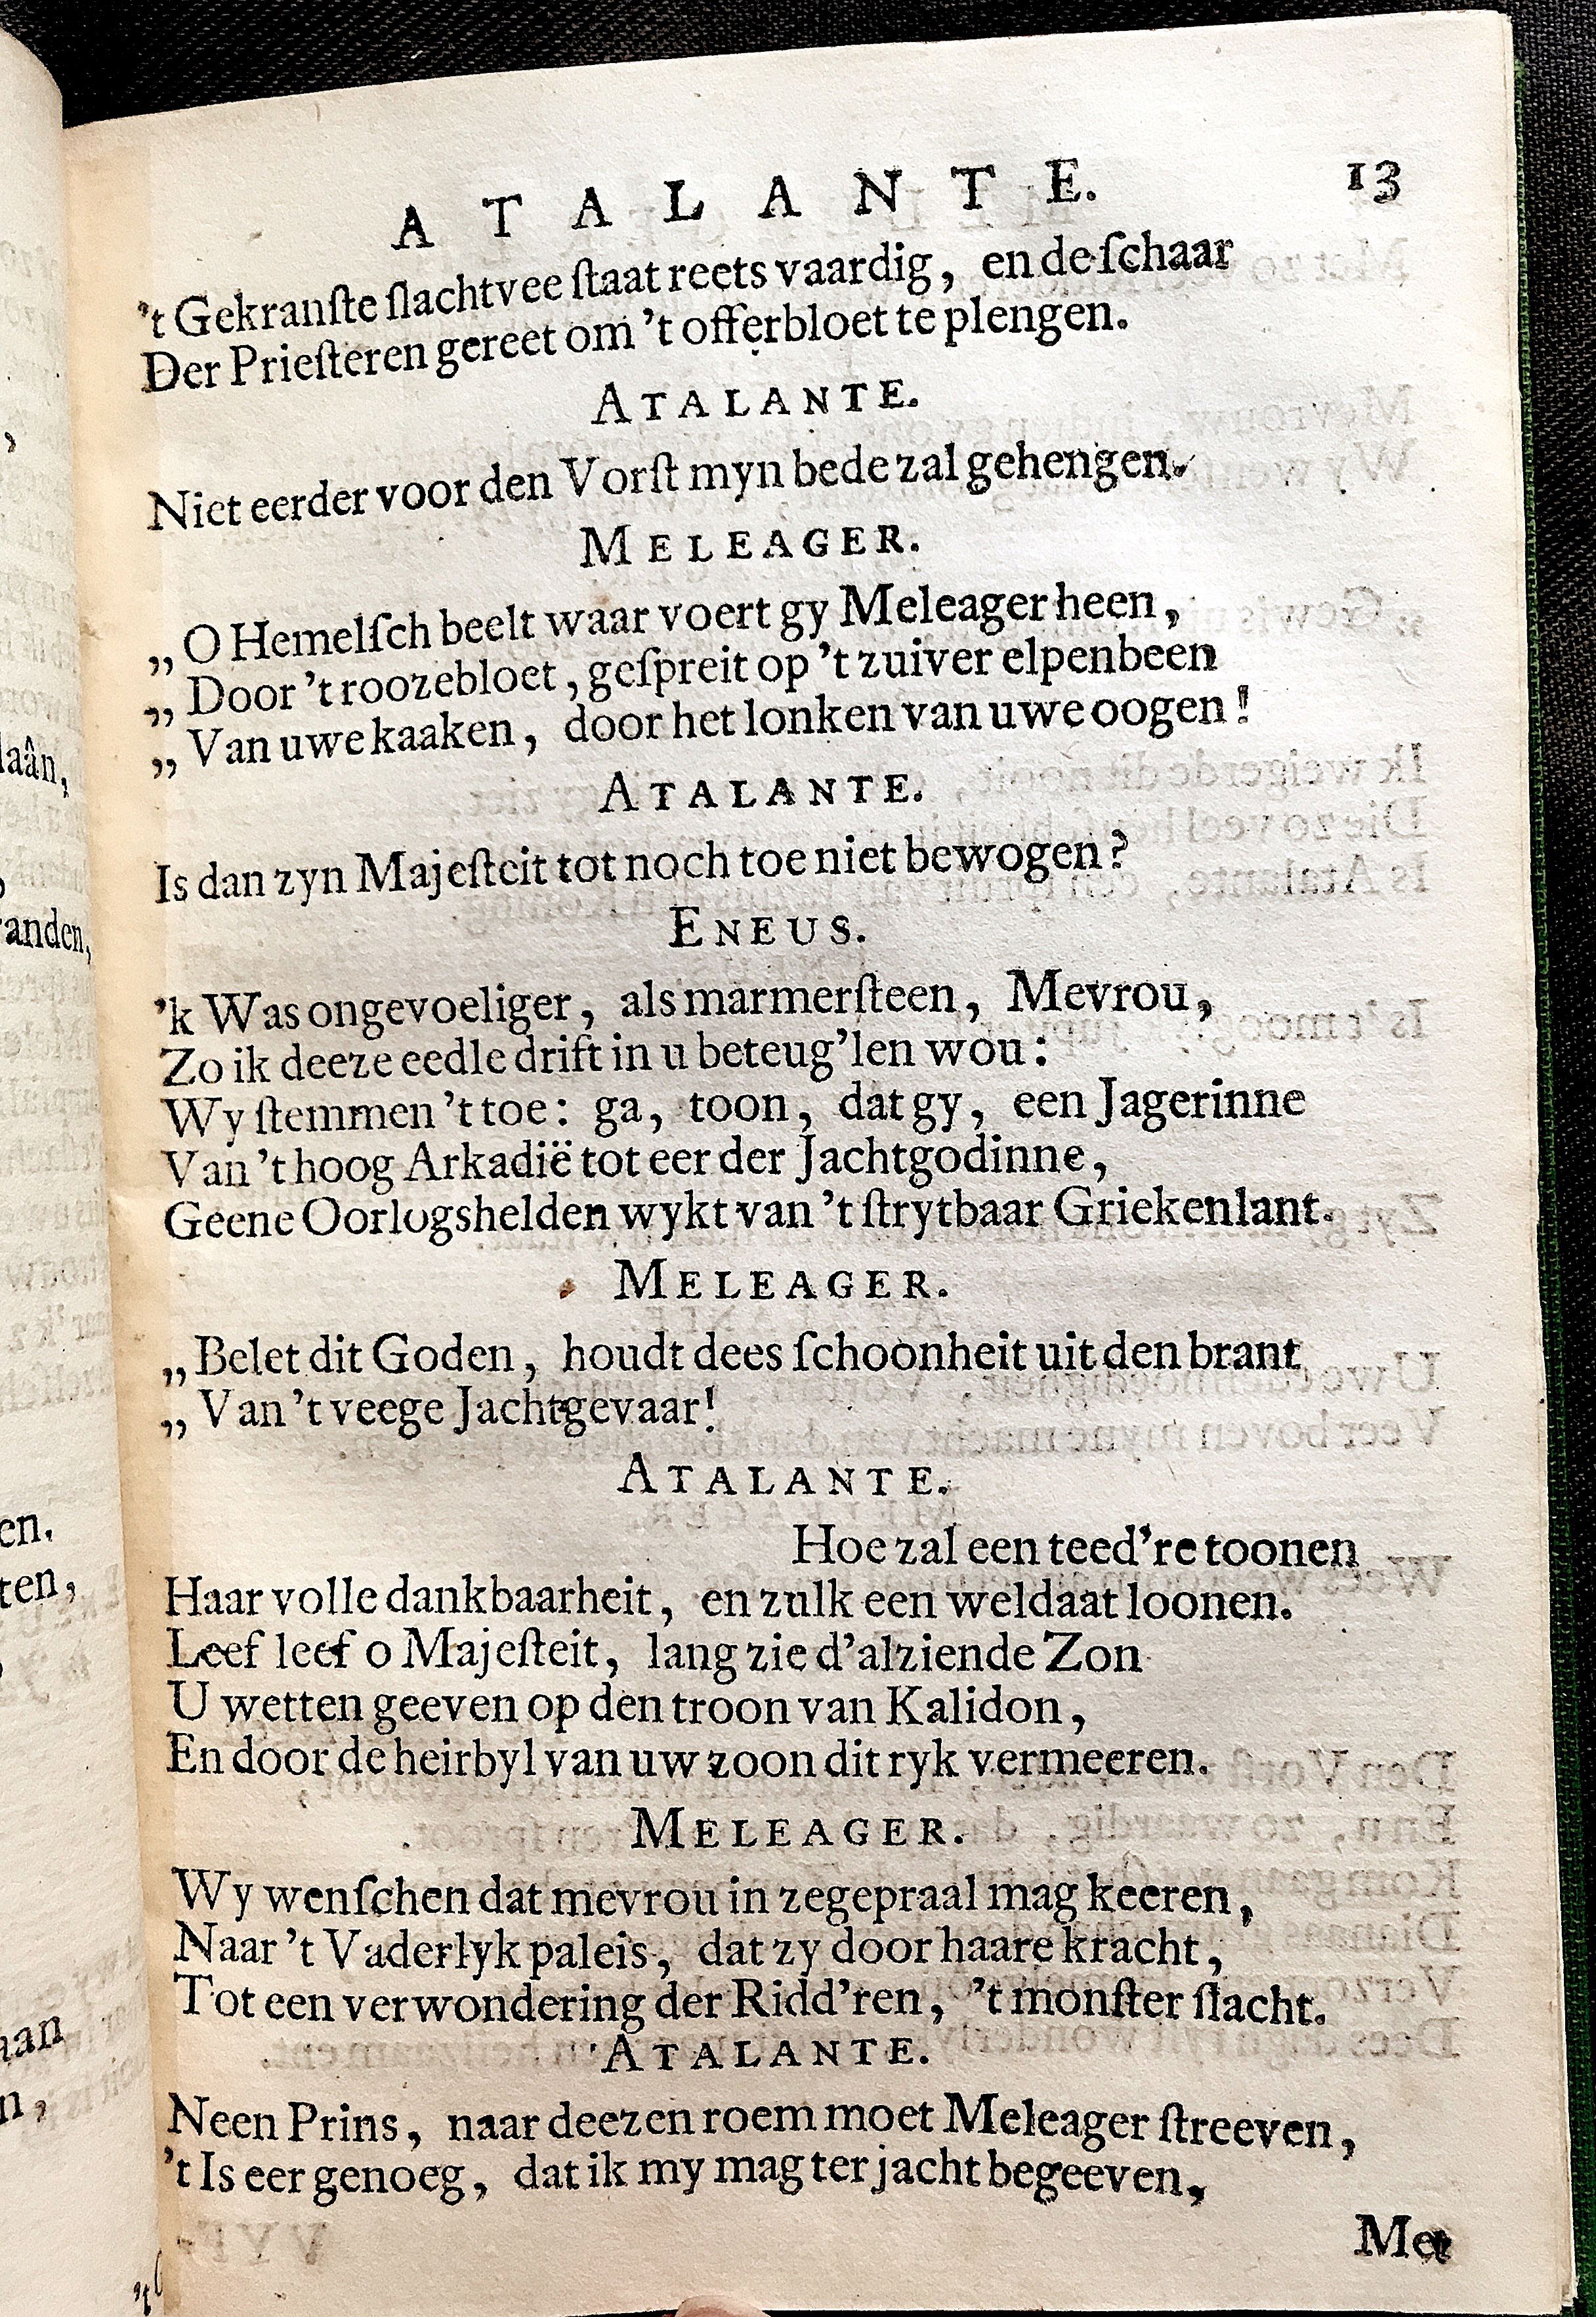 ATALANTE. 13
't Gekranſte ſlachtvee ſtaat reets vaardig, en de ſchaar
Der Prieſteren gereet om 't offerbloet te plengen.
ATALANTE.
Niet eerder voor den Vorſt myn bede zal gehengen.
MELEAGER.
„ O Hemelſch beelt waar voert gy Meleager heen,
„ Door 't roozebloet, geſpreit op 't zuiver elpenbeen
„ Van uwe kaaken, door het lonken van uwe oogen!
ATALANTE.
Is dan zyn Majeſteit tot noch toe niet bewogen?
ENEUS.
'k Was ongevoeliger, als marmerſteen, Mevrou,
Zo ik deeze eedle drift in u beteug'len wou:
Wy ſtemmen 't toe: ga, toon, dat gy, een Jagerinne
Van 't hoog Arkadië tot eer der Jachtgodinne,
Geene Oorlogshelden wykt van 't ſtrytbaar Griekenlant.
MELEAGER.
„ Belet dit Goden, houdt dees ſchoonheit uit den brant
„ Van 't veege Jachtgevaar!
ATALANTE.
Hoe zal een teed're toonen
Haar volle dankbaarheit, en zulk een weldaat loonen.
Leef leef o Majeſteit, lang zie d'alziende Zon
U wetten geeven op den troon van Kalidon,
En door de heirbyl van uw zoon dit ryk vermeeren.
MELEAGER.
Wy wenſchen dat mevrou in zegepraal mag keeren,
Naar 't Vaderlyk paleis, dat zy door haare kracht,
Tot een verwondering der Ridd'ren, 't monſter ſlacht.
ATALANTE.
Neen Prins, naar deezen roem moet Meleager ſtreeven,
't Is eer genoeg, dat ik my mag ter jacht begeeven,
Met